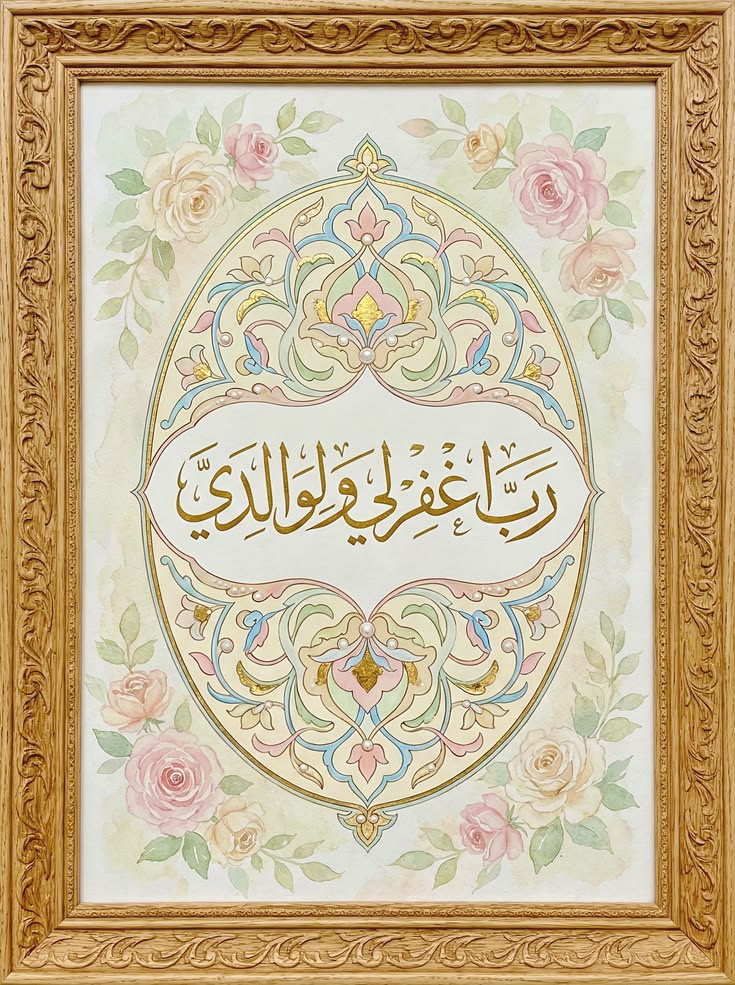 رَبَّ اغْفِرْلي وَلِوَالِدَيَّ